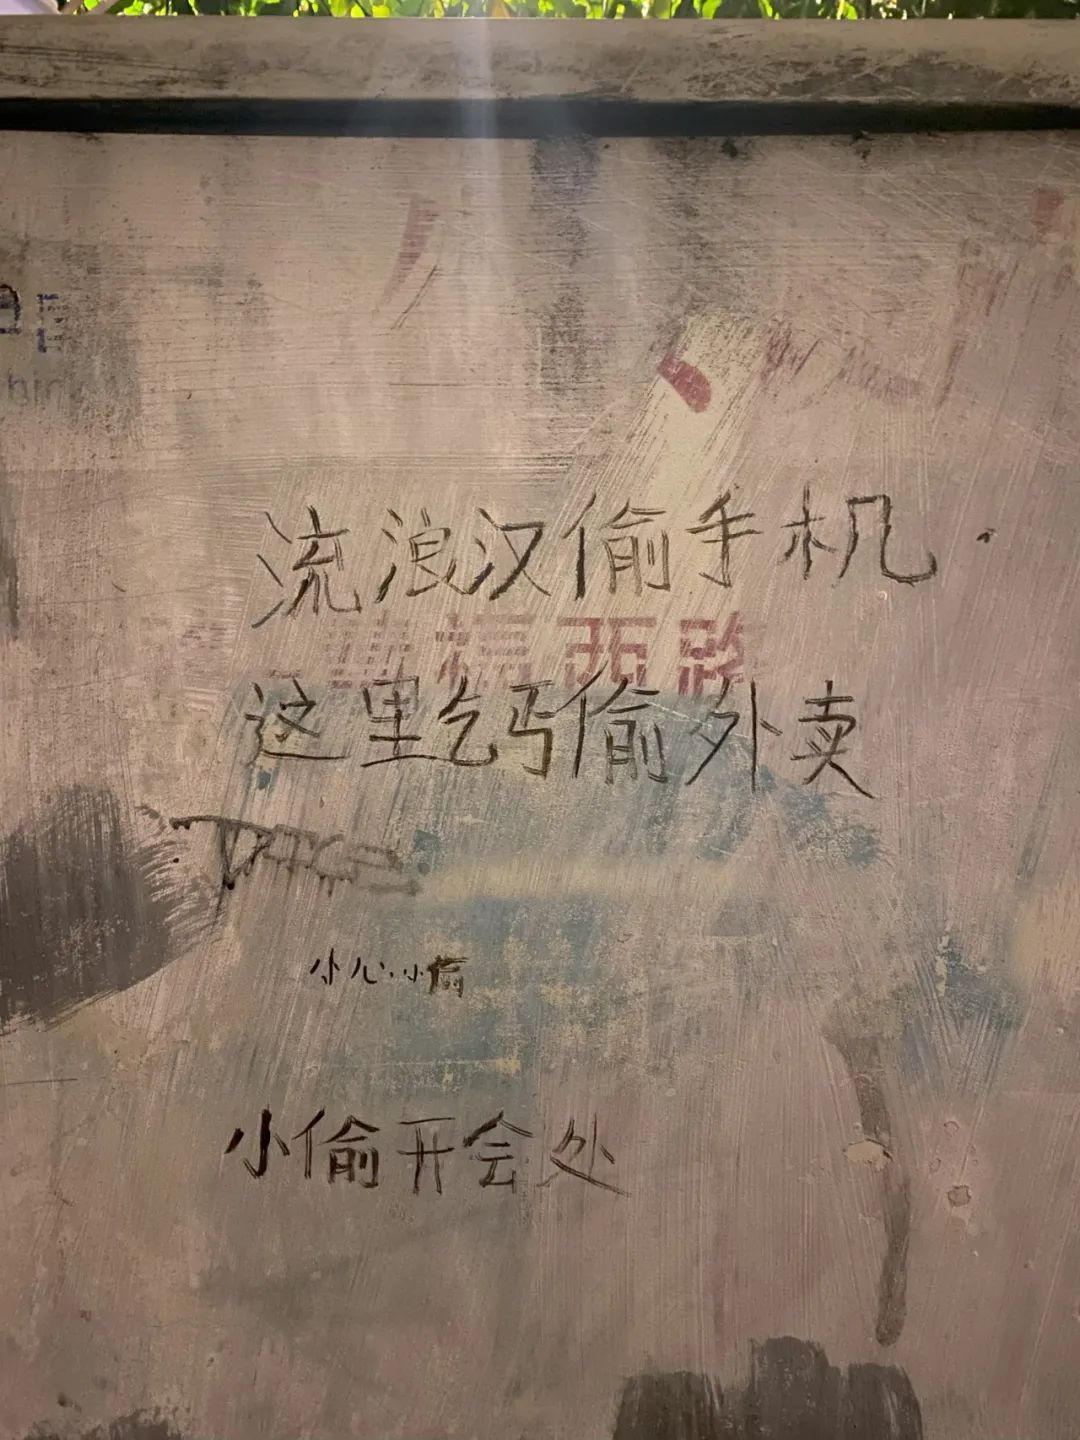 流浪汉偷手机.
福西路
这里乞丐偷外卖
小心小偷
小偷开会处